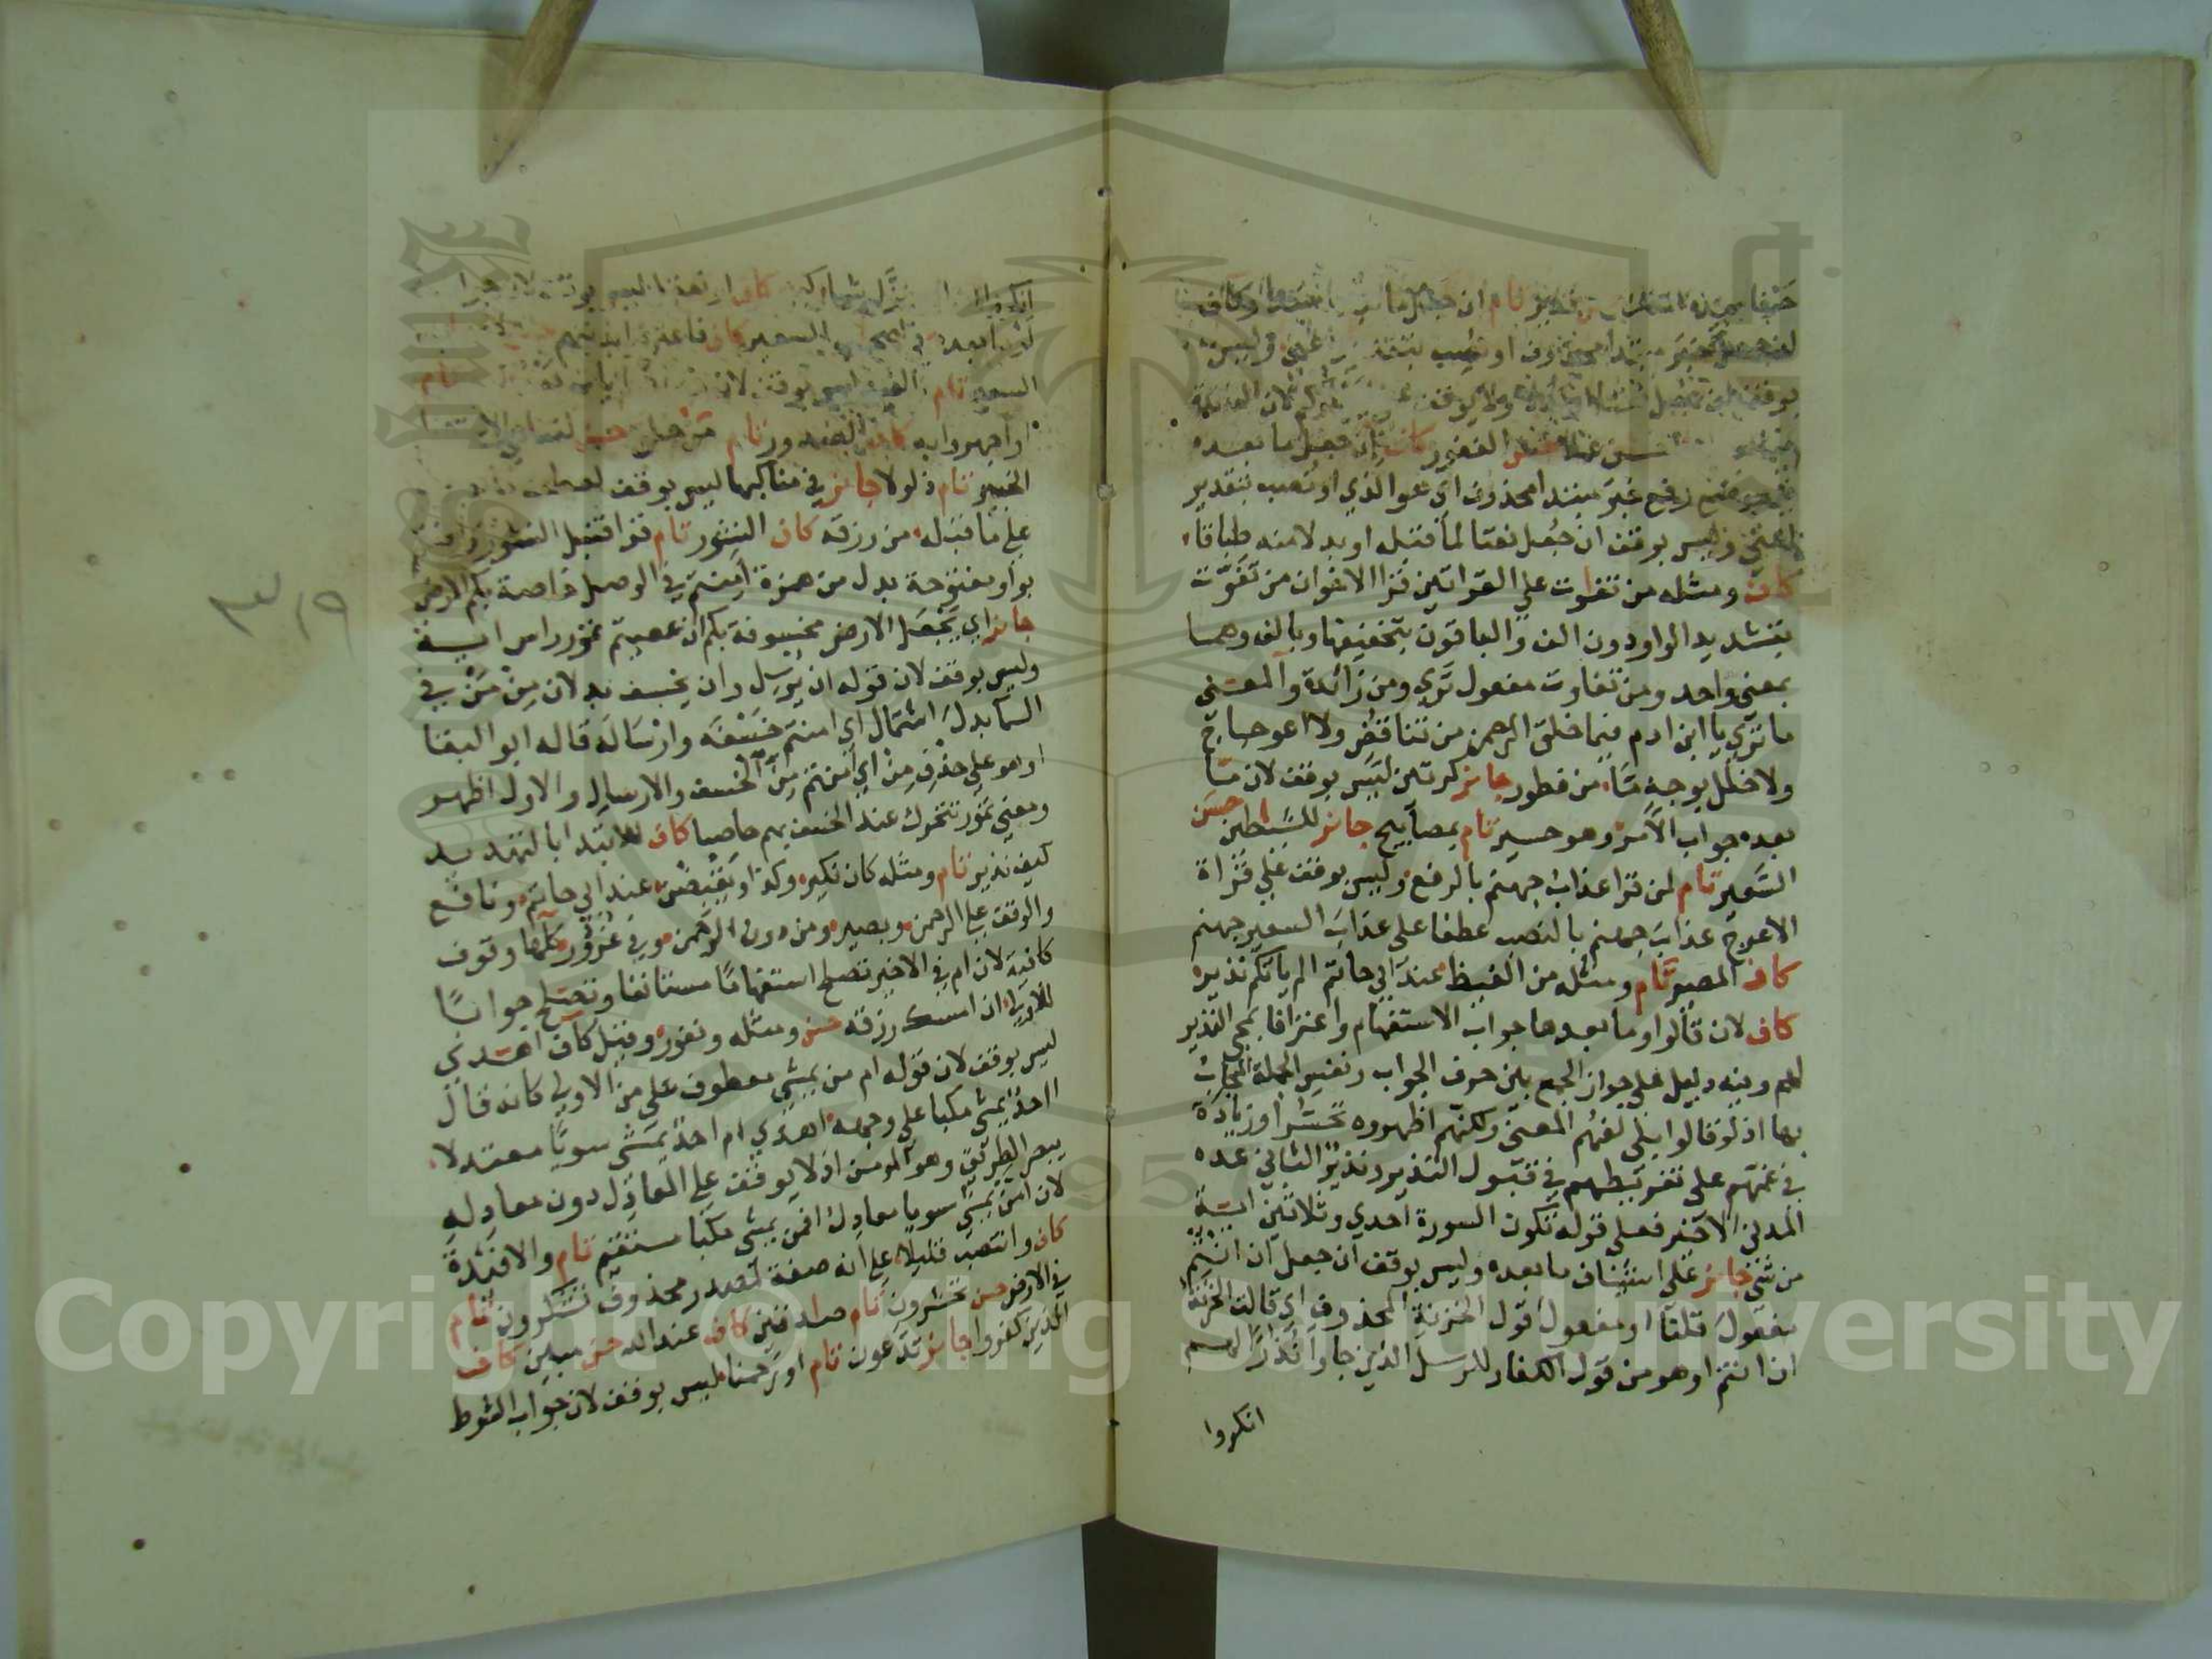 قدير تام ان جعل ما
لمن جعله خبر مبتدا محذوف او نصب بتقدير اعني وليس
بوقف لمن جعل
الغفور كاف ان جعل ما بعده
في موضع رفع خبر مبتدا محذوف اي هو الذي او نصب بتقدير
اعني وليس بوقف ان جعل نعتا لما قبله او بدلا منه طباقا
كاف ومثله من تفاوت على القراتين قرا الاخوان من تفوت
بتشديد الواو دون الف والباقون بتخفيفها وبالف وهما
بمعني واحد ومن تفاوت مفعول تري ومن زائدة والمعني
ما تري يا ابن ادم فيما خلق الرحمن من تناقض ولا اعوجاج
ولا خلل بوجه ما من فطور جائز كرتين ليس بوقف لان ما
بعده جواب الامر وهو حسير تام بمصابيح جائز للشياطين حسن
السعير تام لمن قرا عذاب جهنم بالرفع وليس بوقف علي قراة
الاعرج عذاب جهنم بالنصب عطفا علي عذاب السعير جهنم
كاف المصير تام ومثله من الغيظ عند ابي حاتم الم ياتكم نذير
كاف لان قالوا وما بعدها جواب الاستفهام واعترافا بمجي النذير
لهم وفيه دليل علي جواز الجمع بين حرف الجواب ونفس الجملة المجاب
بها اذ لو قالوا بلي لفهم المعني ولكنهم اظهروه تحسرا وزيادة
في غمهم علي تفريطهم في قبول النذير ونذير الثاني عده
المدني الاخير فعلي قوله تكون السورة احدي وثلاثين اية
من شي جائز علي استيناف ما بعده وليس بوقف ان جعل ان انتم
مفعول قلنا او مفعول قول الخزنة المحذوف اي قالت الخزنة
ان انتم او هو من قول الكفار للرسل الذين جاوا نذارا لهم
انكروا
السعير كاف
السعير تام
او اجهروا به كاف الصدور تام من خلق حسن
الخبير تام ذلولا جائز في مناكبها ليس بوقف لعطف
علي ما قبله من رزقه كاف النشور تام قرا قنبل النشور وامنتم
بواو مفتوحة بدل من همزة امنتم في الوصل خاصة بكم الارض
جائز اي يجعل الارض مخسوفة بكم ان عصيتم تمور راس اية
وليس بوقف لان قوله ان يرسل وان يخسف بدلان من من في
السما بدل اشتمال اي امنتم خسفه وارساله قاله ابو البقا
او هو علي حذف من اي امنتم من الخسف والارسال والاول اظهر
ومعني تمور تتحرك عند الخسف بهم حاصبا كاف للابتدا بالتهديد
كيف نذير تام ومثله كان نكير وكذا ويقبضن عند ابي حاتم ونافع
والوقف علي الرحمن وبصير ومن دون الرحمن وفي غرور كلها وقوف
كافية لان ام في الاخير تصلح استفهاما مستانفا وتصلح جوابا
للاولي ان امسك رزقه حسن ومثله ونفور وقيل كاف اهدي
ليس بوقف لان قوله ام من يمشي معطوف علي من الاولي كانه قال
احد يمشي مكبا علي وجهه اهدي ام احد يمشي سويا معتدلا
يبصر الطريق وهو المومن اذ لا يوقف علي المعادل دون معادله
لان امن يمشي سويا معادل افمن يمشي مكبا مستقيم تام والافئدة
كاف وانتصب قليلا علي انه صفة لمصدر محذوف تشكرون تام
في الارض حسن تحشرون تام صادقين كاف عند الله حسن مبين كاف
الذين كفروا جائز تدعون تام او رحمنا ليس بوقف لان جواب الشرط
Copyright © King Saud University